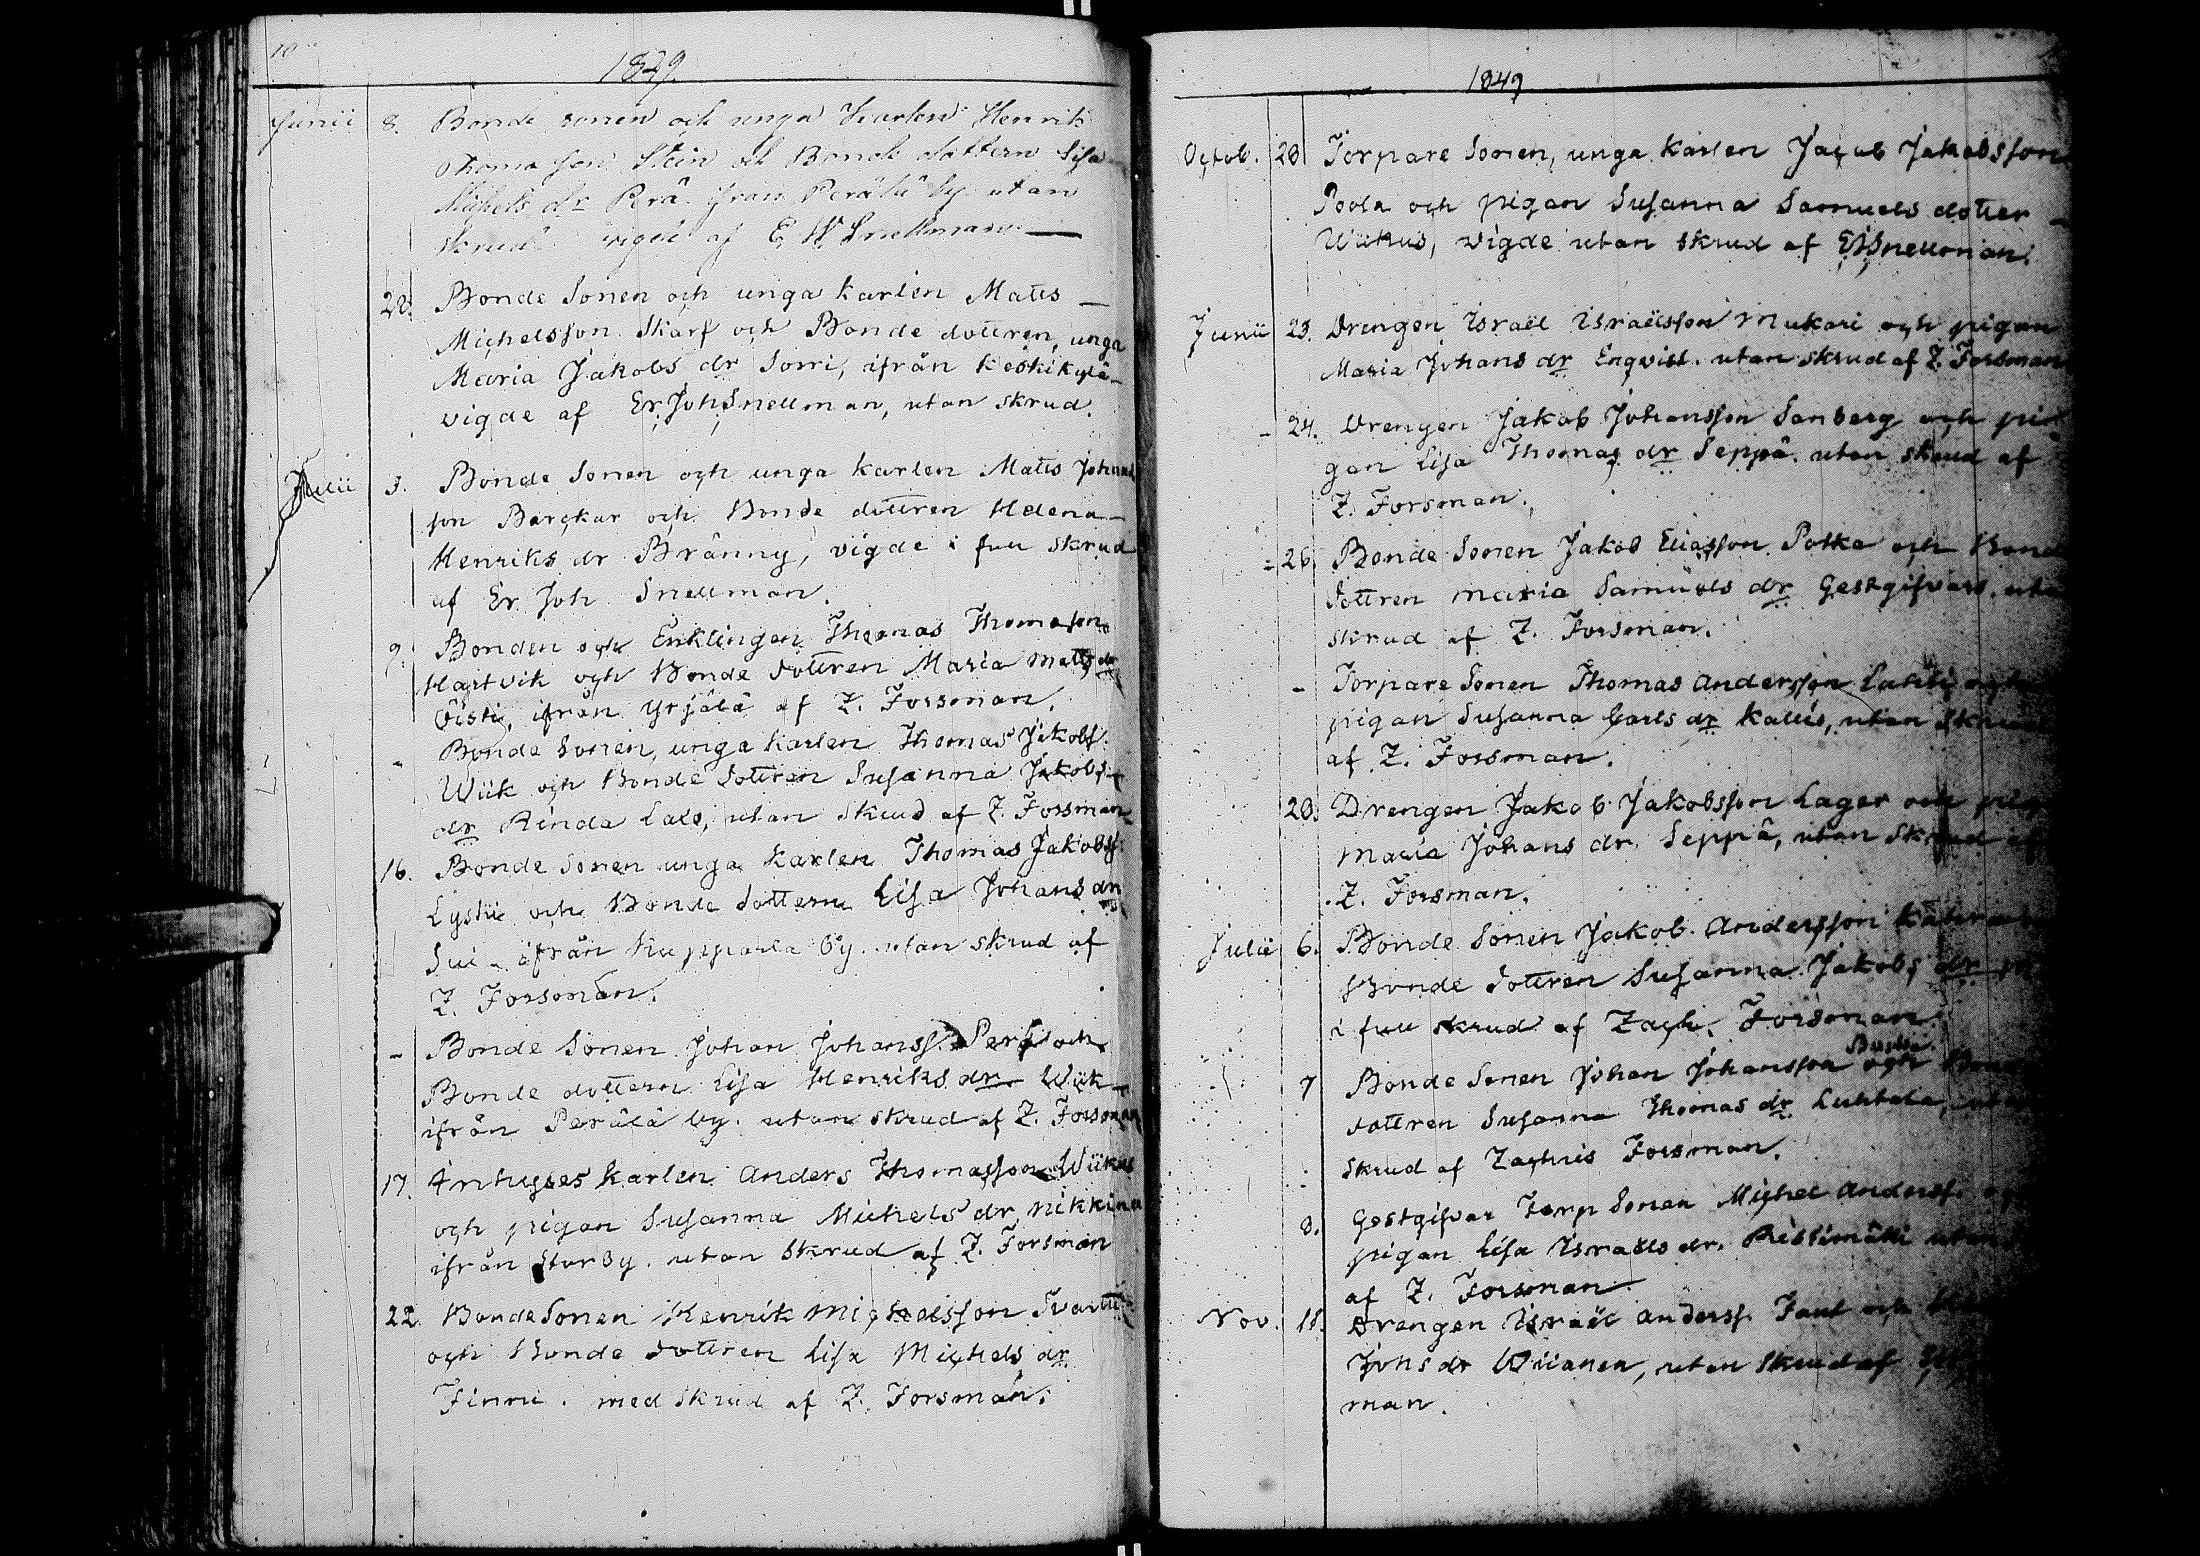 1849
Junii 8. Bonde sonen och unga Karlen Henrik
Thomasson Stein och Bonde dottern Lisa
Michels dr Perä från Perälä by utan
skrud vigde af E W Snellman
20. Bonde Sonen och unga karlen Matts
Michelsson Skarf och Bonde dottren, unga
Maria Jakobs dr Sorri, ifrån Keskikylä
vigde af Er, Joh, Snellman, utan skrud.
Julii 3. Bonde Sonen och unga karlen Matts Johans
son Barckar och Bonde dottren Helena
Henriks dr Bränny, vigde i full skrud
af Er. Joh Snellman.
9. Bonden och Enklingen Thomas Thomasson
Hartvik och Bonde dottren Maria Matts dr
Östi, ifrån Yrjälä af Z. Forsman.
- Bonde Sonen, unga karlen Thomas Jakobs.
Wiik och Bonde dottren Susanna Jakobs
dr Rinda Lals, utan skrud af Z. Forsman
16. Bonde Sonen unga Karlen Thomas Jakobss.
och Bonde dottern Lisa Johans dr
Sui ifrån Kupparla by. utan skrud af
Z. Forsman.
- Bonde Sonen Johan Johanss. och
Bonde dottern Lisa Henriks dr Wiik
ifrån Perälä by. utan skrud af Z. Forsman
17. karlen Anders Thomasson Wiikus
och pigan Susanna Michels dr Nikkina
ifrån Storby. utan skrud af Z. Forsman
22. Bonde Sonen Henrik Michelsson
och Bonde dottren Lisa Michels dr
Finni. med skrud af Z. Forsman.
1849
Octob. 20 Torpare Sonen, unga karlen Jacob Jakobsson
Poola och pigan Susanna Samuels dotter
Wiikus, vigde utan skrud af EJSnellman.
Junii 23. Drengen Israël Israëlsson Mukari och pigan
Maria Johans dr Enqvist. utan skrud af Z. Forsman
- 24. Drengen Jakob Johansson Sanberg och pi
gan Lisa Thomas dr Seppä. utan skrud af
Z. Forsman.
- 26. Bonde Sonen Jakob Eliasson Potka och Bond
dottren Maria Samuels dr Gestgifvars. uta
skrud af Z. Forsman.
- Torpare Sonen Thomas Andersson Lahti och
pigan Susanna Carls dr Kallis, utan Skru
af Z. Forsman.
20. Drengen Jakob Jakobsson Lager och pig
Maria Johans dr. Seppä, utan skrud af
Z. Forsman.
Julii 6. Bonde Sonen Jakob Andersson
Bonde dottren Susanna Jakobs dr
i full skrud af Zach. Forsman
7 Bonde Sonen Johan Johansson och
dottren Susanna Thomas dr Luhtala, uta
Skrud af Zachris Forsman.
8. Gestgifvar Torp Sonen Michel Anderss.
pigan Lisa Israels dr. Ristimäki utan
af Z. Forsman.
Nov. 18. Drengen Israël Anderss. Fant och
Johs dr Wiianen, utan skrud af
man.